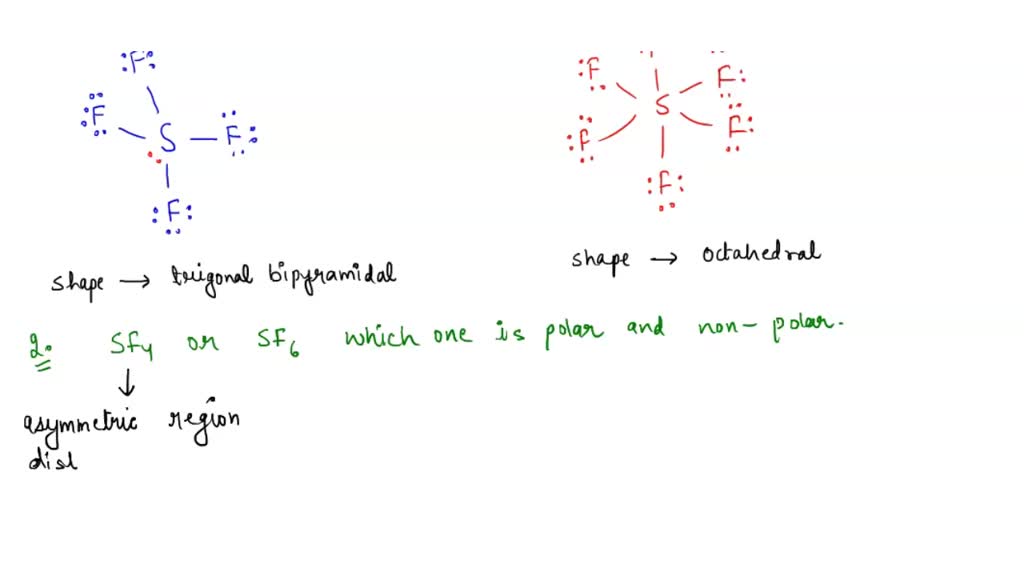 :F:
:F
S
F:
:F:
:F
S
F:
:F
F:
:F:
shape → trigonal bipyramidal
shape → octahedral
2. SF4 or SF6 which one is polar and non-polar.
↓
asymmetric region
dist